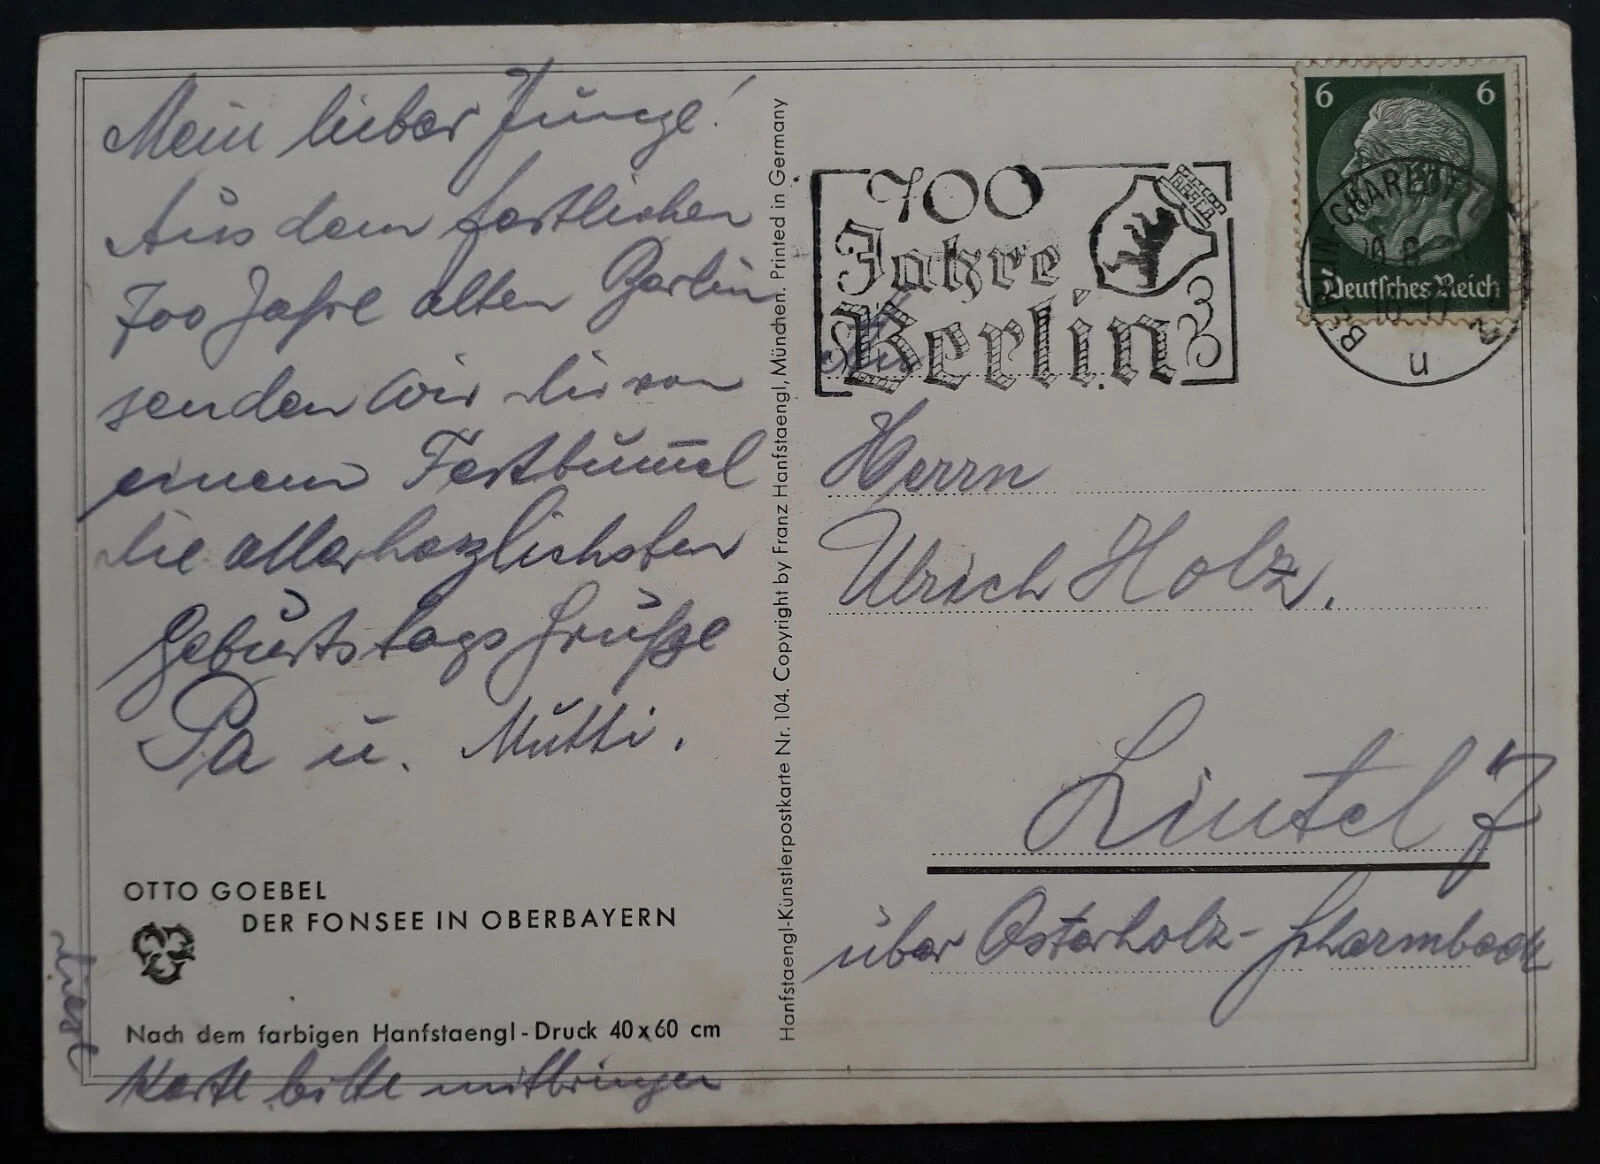 Mein lieber Junge!
Aus dem festlichen
700 Jahre alten Berlin
senden wir Dir von
einem Festbum̅el
die allerherzlichsten
Geburtstagsgrüße
Pa u. Mutti.
OTTO GOEBEL
DER FONSEE IN OBERBAYERN
Nach dem farbigen Hanfstaengl-Druck 40x60 cm
Diese
Karte bitte mitbringen
Hanfstaengl-Künstlerpostkarte Nr. 104. Copyright by Franz Hanfstaengl, München. Printed in Germany
700
Jahre
Berlin
6 6
Deutsches Reich
BERLIN-CHARLOTT
u
An
Herrn
Ulrich Holz.
Lintel 7
über Osterholz-Scharmbeck